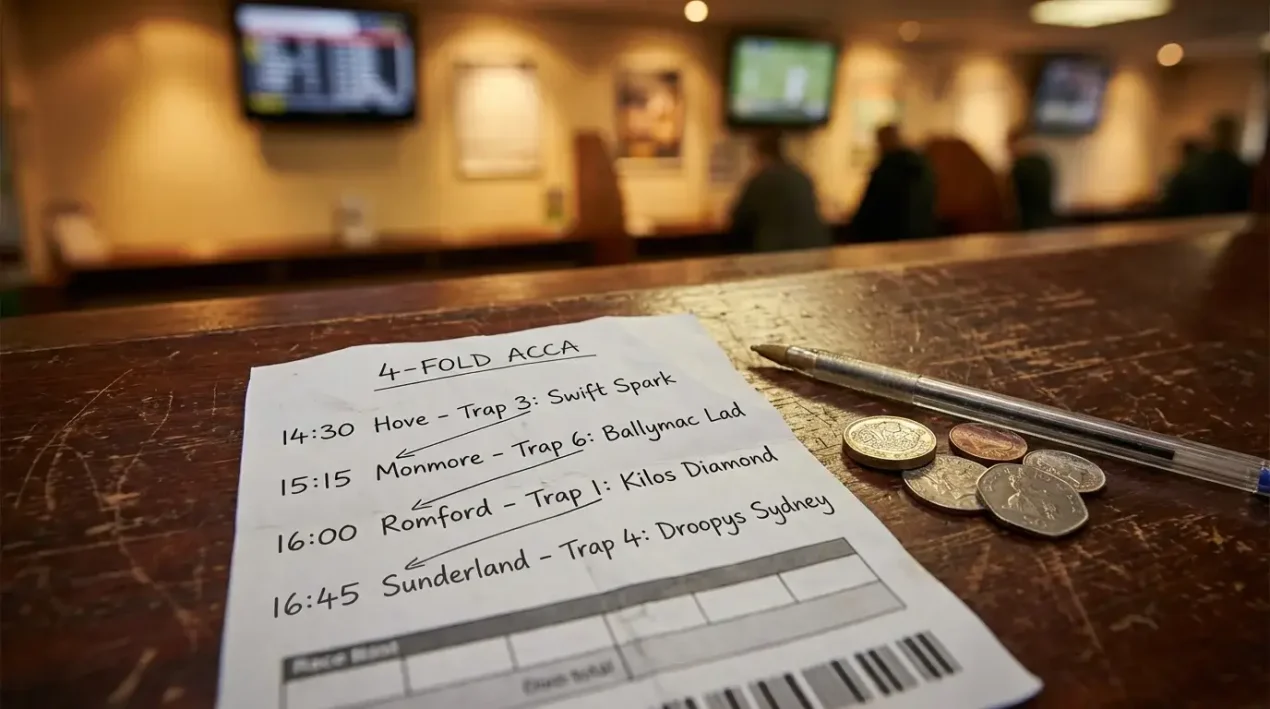 4-FOLD ACCA
14:30 Hove - Trap 3: Swift Spark
15:15 Monmore - Trap 6: Ballymac Lad
16:00 Romford - Trap 1: Kilos Diamond
16:45 Sunderland - Trap 4: Droopys Sydney